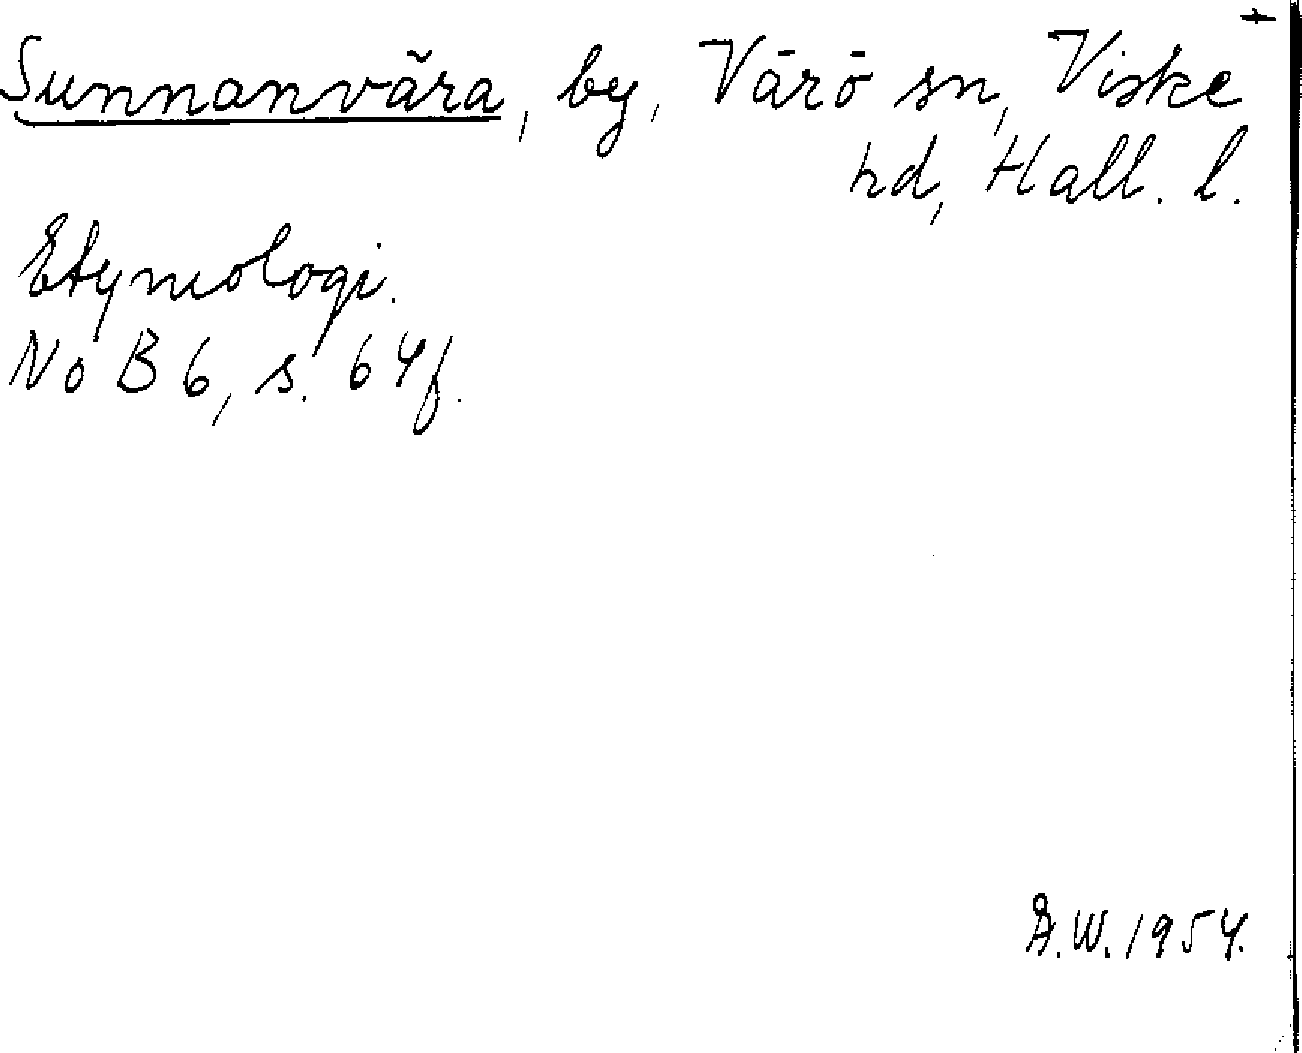 +
Sunnanvära, by, Värö sn, Viske
hd, Hall. l.
Etymologi.
NoB 6, s. 64f.
Å.W. 1954.